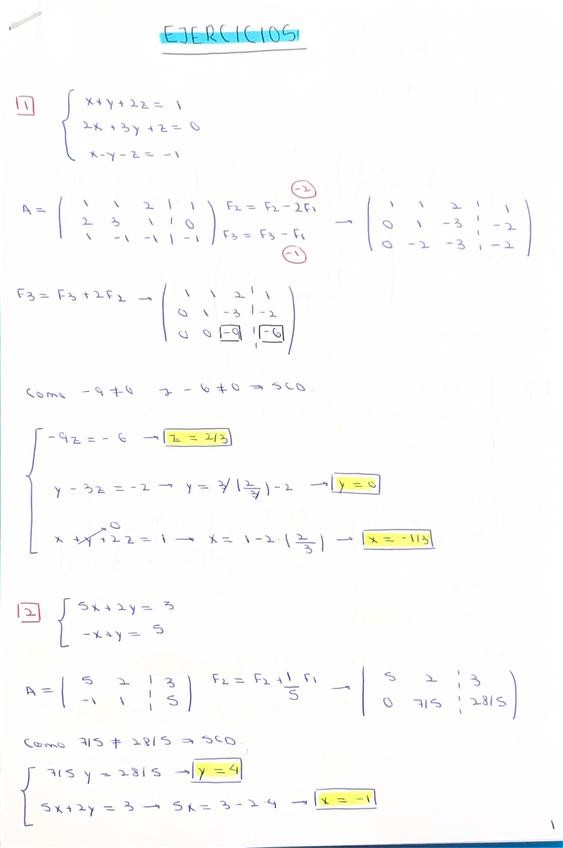 EJERCICIOS
1
x+y+2z = 1
2x+3y+z = 0
x-y-z = -1
-2
A = ( 1 1 2 | 1
2 3 1 | 0
1 -1 -1 | -1 ) F2 = F2 - 2F1
F3 = F3 - F1 → ( 1 1 2 | 1
0 1 -3 | -2
0 -2 -3 | -2 )
-1
F3 = F3 + 2F2 → ( 1 1 2 | 1
0 1 -3 | -2
0 0 -9 | -6 )
Como -9 ≠ 0 y -6 ≠ 0 ⇒ SCD.
-9z = -6 → z = 2/3
y - 3z = -2 → y = 3 (2/3) - 2 → y = 0
0
x + y + 2z = 1 → x = 1 - 2 · (2/3) → x = -1/3
2
5x + 2y = 3
-x + y = 5
A = ( 5 2 | 3
-1 1 | 5 ) F2 = F2 + 1/5 F1 → ( 5 2 | 3
0 7/5 | 28/5 )
Como 7/5 ≠ 28/5 ⇒ SCD.
7/5 y = 28/5 → y = 4
5x + 2y = 3 → 5x = 3 - 2·4 → x = -1
1